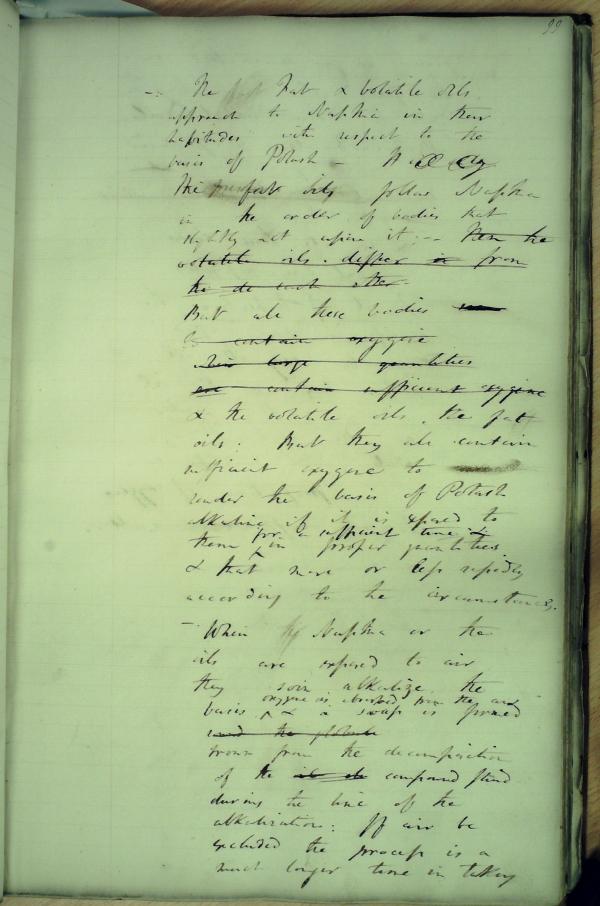 99
The Fat & volatile oils
approach to Naptha in their
habitudes with respect to the
basis of Potash -
The fat oils follow Naptha
in the order of bodies that
slightly act upon it; - Then the
volatile oils. differ in from
the each other.
But all these bodies
contain oxygene
large quantities
contain sufficient oxygene
& the volatile oils, the fat
oils. But they all contain
sufficient oxygene to
render the basis of Potash
alkaline if it is exposed to
for a sufficient time &
them in proper quantities
& that more or less rapidly
according to the circumstances.
- When Naptha or the
oils are exposed to air
they soon alkalize the
oxygene is absorbed from the air
basis & a soap is formed
and the
brown from the decomposition
of the compound fluid
during the time of the
alkalization: If air be
excluded the process is a
much longer time in taking